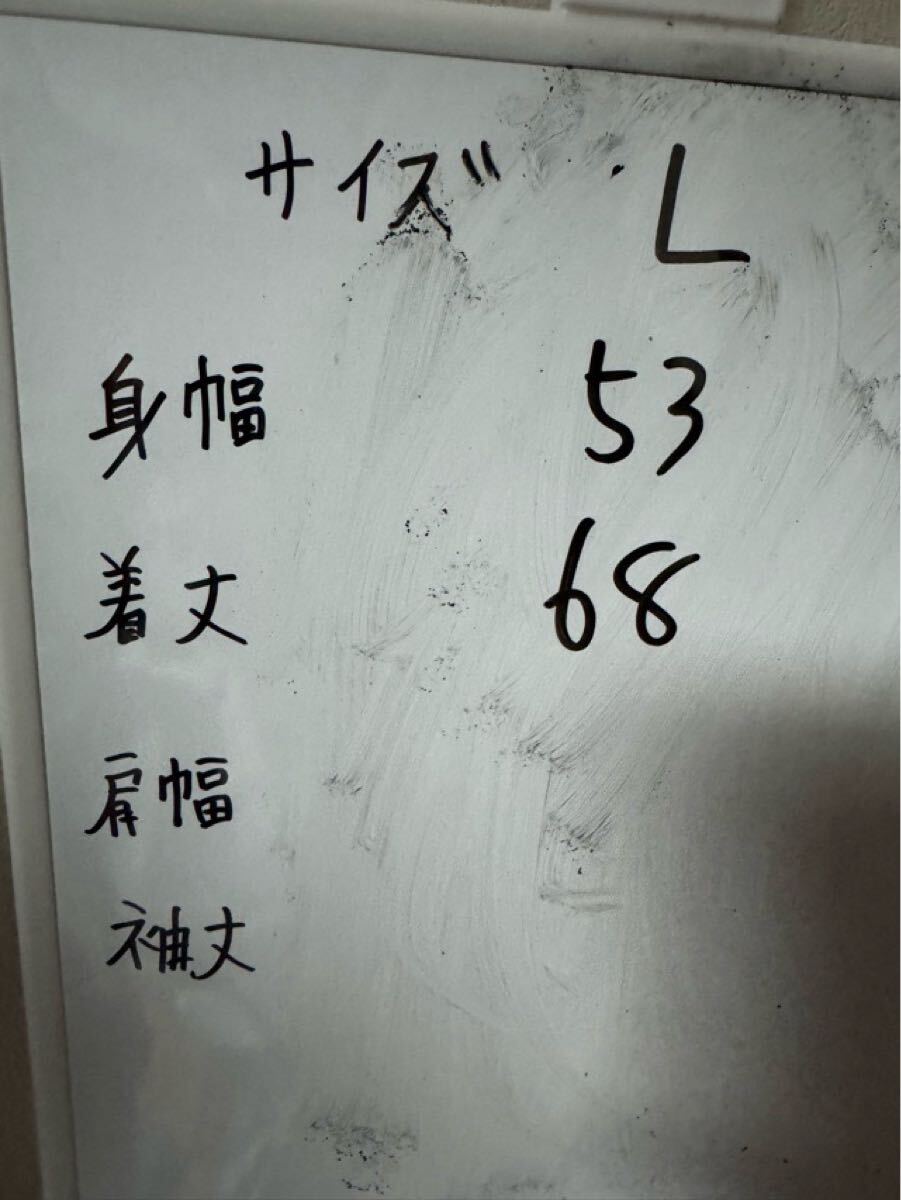 サイズ L
身幅 53
着丈 68
肩幅
袖丈